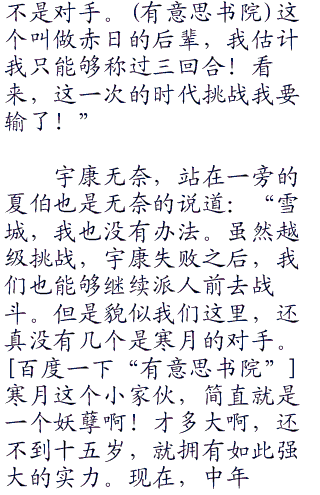 不是对手。(有意思书院)这
个叫做赤日的后辈，我估计
我只能够称过三回合！看
来，这一次的时代挑战我要
输了！”
宇康无奈，站在一旁的
夏伯也是无奈的说道：“雪
城，我也没有办法。虽然越
级挑战，宇康失败之后，我
们也能够继续派人前去战
斗。但是貌似我们这里，还
真没有几个是寒月的对手。
[百度一下“有意思书院”]
寒月这个小家伙，简直就是
一个妖孽啊！才多大啊，还
不到十五岁，就拥有如此强
大的实力。现在，中年